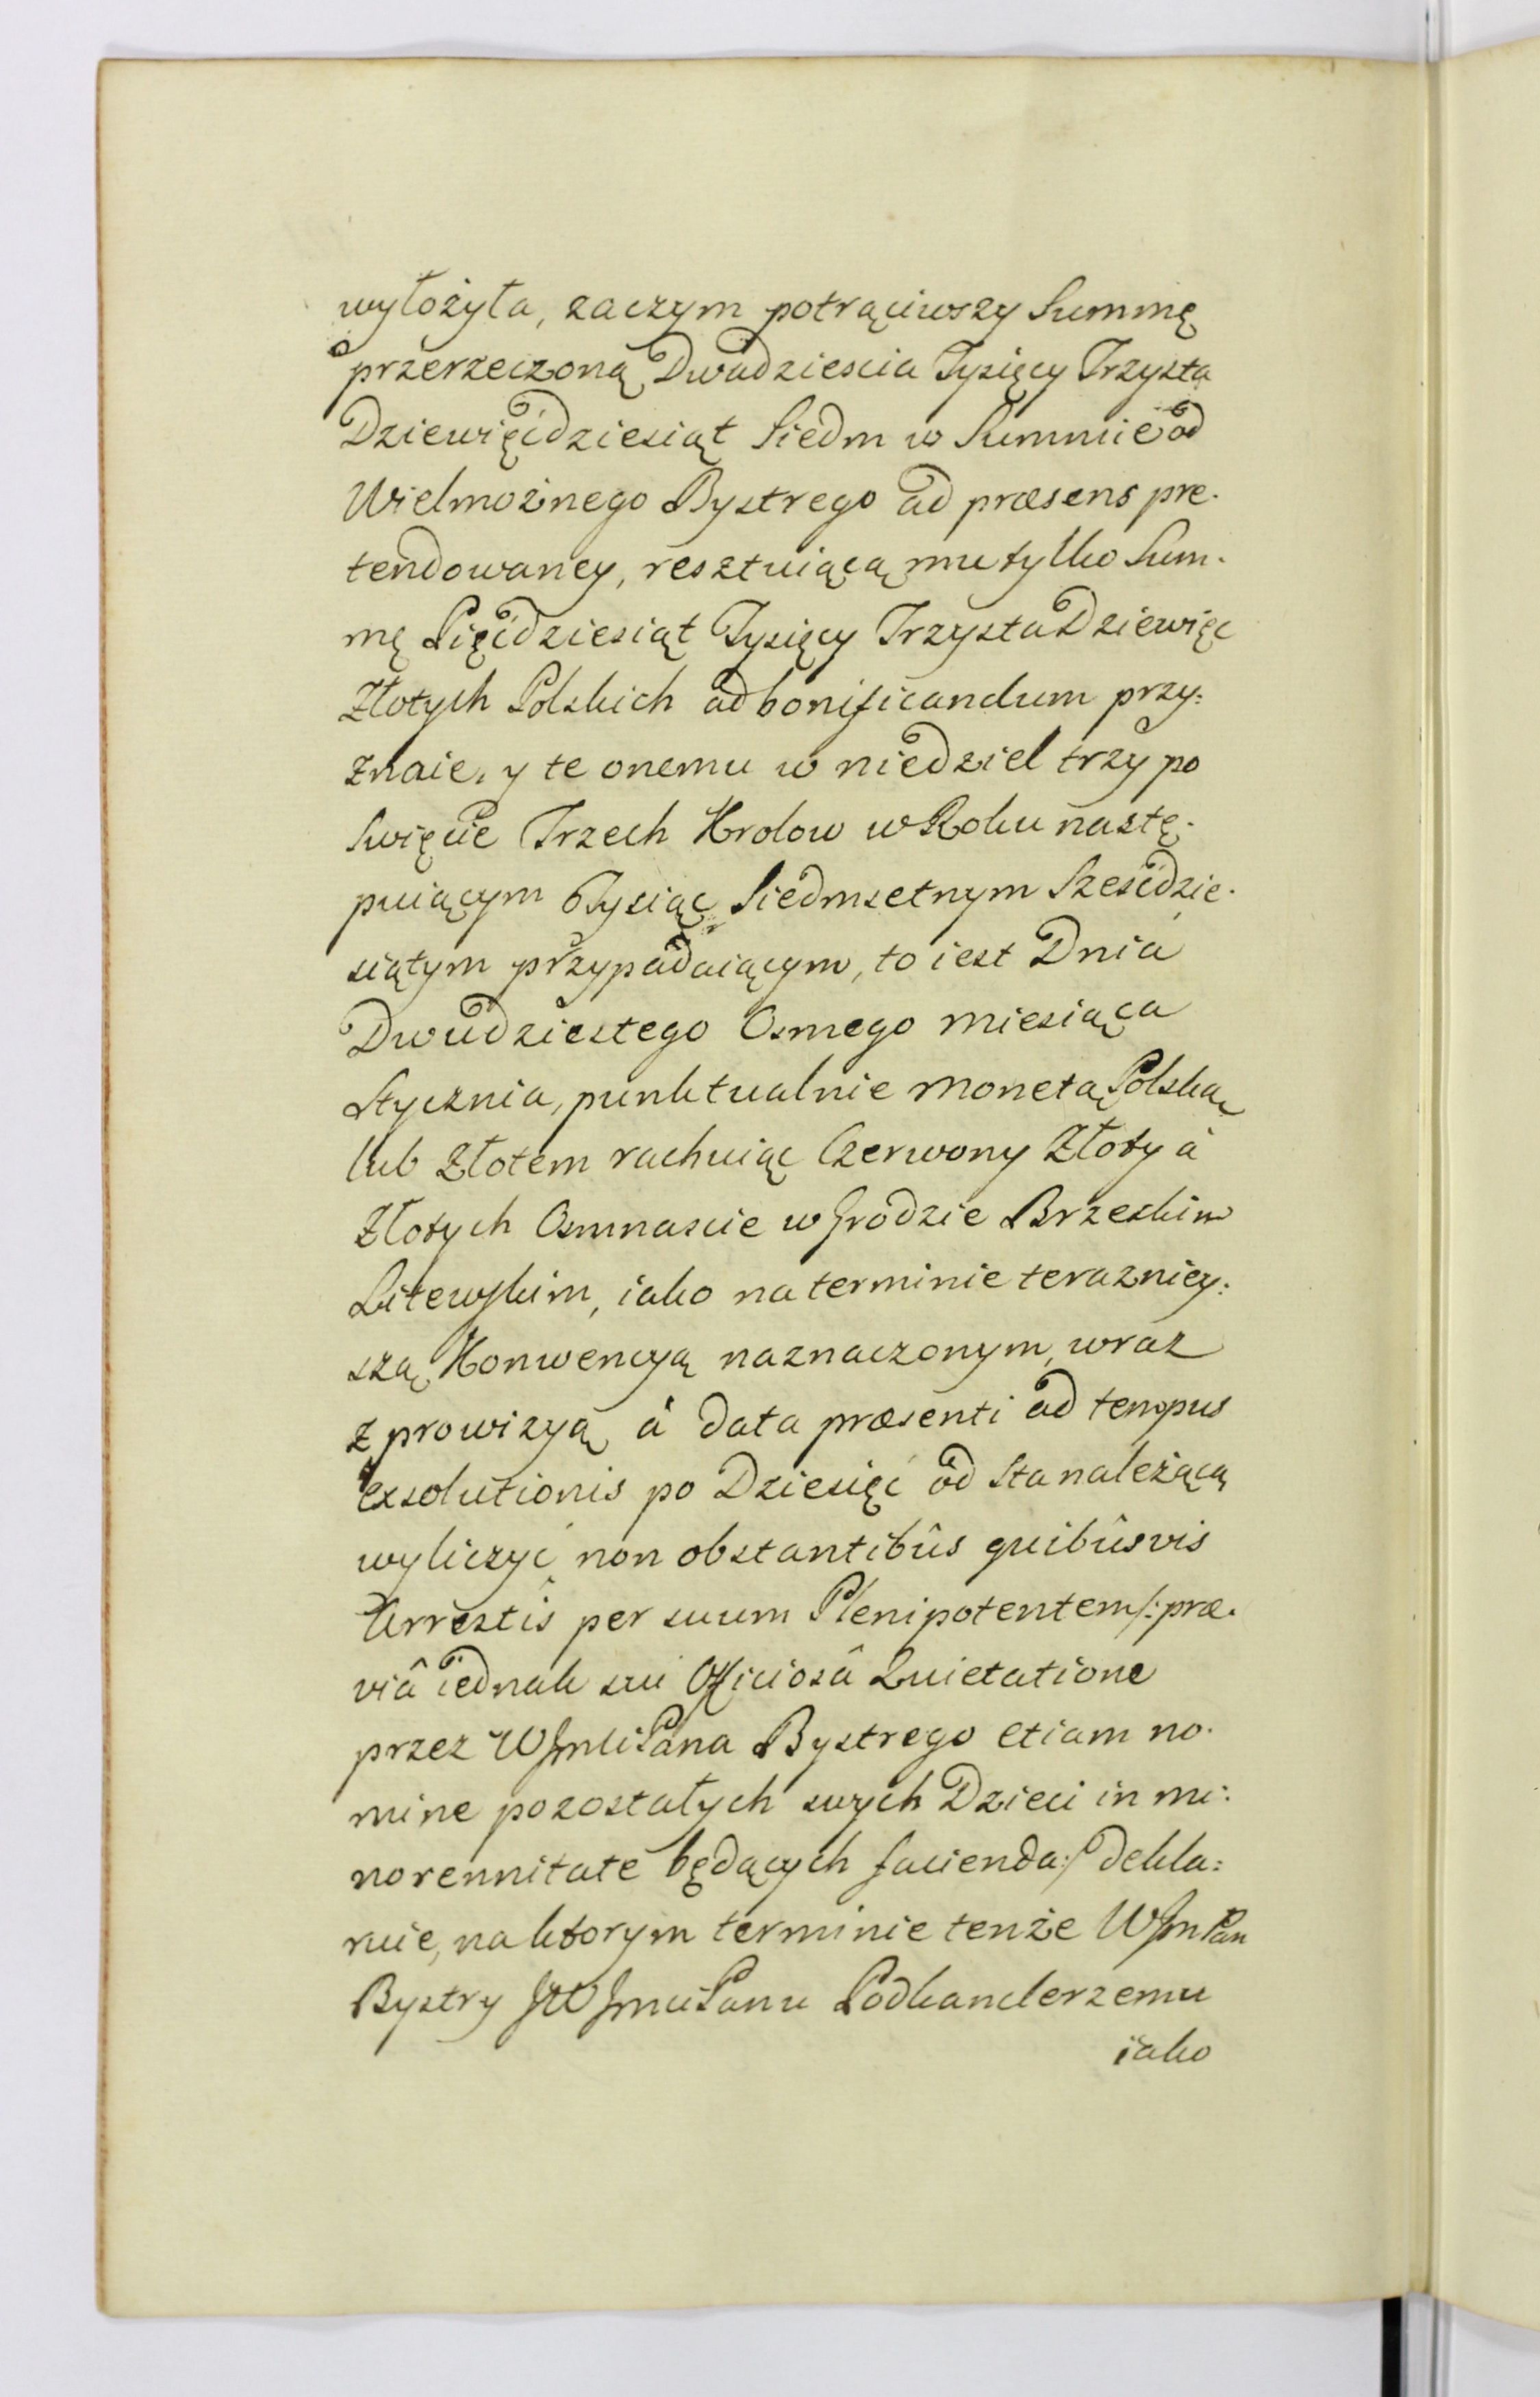 wyłożyła, zaczym potrąciwszy Summę
przerzeczoną Dwadziescia Tysięcy Trzysta
Dziewięćdziesiąt Siedm w Summie od
Wielmożnego Bystrego ad præsens pre.
tendowaney, resztuiącą mu tylko Sum.
mę Pięćdziesiąt Tysięcy Trzysta Dziewięc
Złotych Polskich ad bonificandum przy:
znaie, y te onemu w niedziel trzy po
Swięcie Trzech Krolow w Roku nastę.
puiącym Tysiąc Siedmsetnym Sześćdzie.
siątym przypadaiącym, to iest Dnia
Dwudziestego Osmego miesiąca
Stycznia, punktualnie monetą Polską
lub złotem rachuiąc Czerwony Złoty à
Złotych Osmnascie w Grodzie Brzeskim
Litewskim, iako na terminie terazniey:
szą Konwencyą naznaczonym, wraz
z prowizyą à data præsenti ad tempus
exsolutionis po Dziesięć od sta należącą
wyliczyć, non obstantibûs quibûsvis
Arrestis per suum Plenipotentem /: præ.
viâ iednak sui Officiosâ Quietatione
przez WJmći Pana Bystrego etiam no.
mine pozostałych swych Dzieci in mi:
norennitate będących facienda :/ dekla:
ruie, na ktorym terminie tenże WJm Pan
Bystry JWJmći Panu Podkanclerzemu
iako